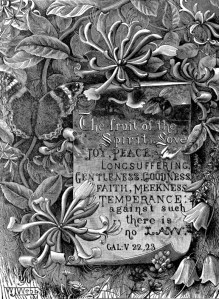 The fruit of the
Spirit, Love
JOY, PEACE,
LONGSUFFERING,
GENTLENESS, GOODNESS
FAITH, MEEKNESS
TEMPERANCE:
against such
there is
no LAW.
GAL: V 22,23.